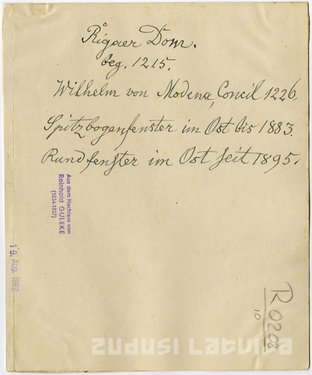 Rigaer Dom.
beg. 1215.
Wilhelm von Modena, Concil 1226.
Spitzbogenfenster im Ost bis 1883.
Rundfenster im Ost seit 1895.
Aus dem Nachlass von
Reinhold GULEKE
(1834-1927)
R 0208
10
zudusi Latvija